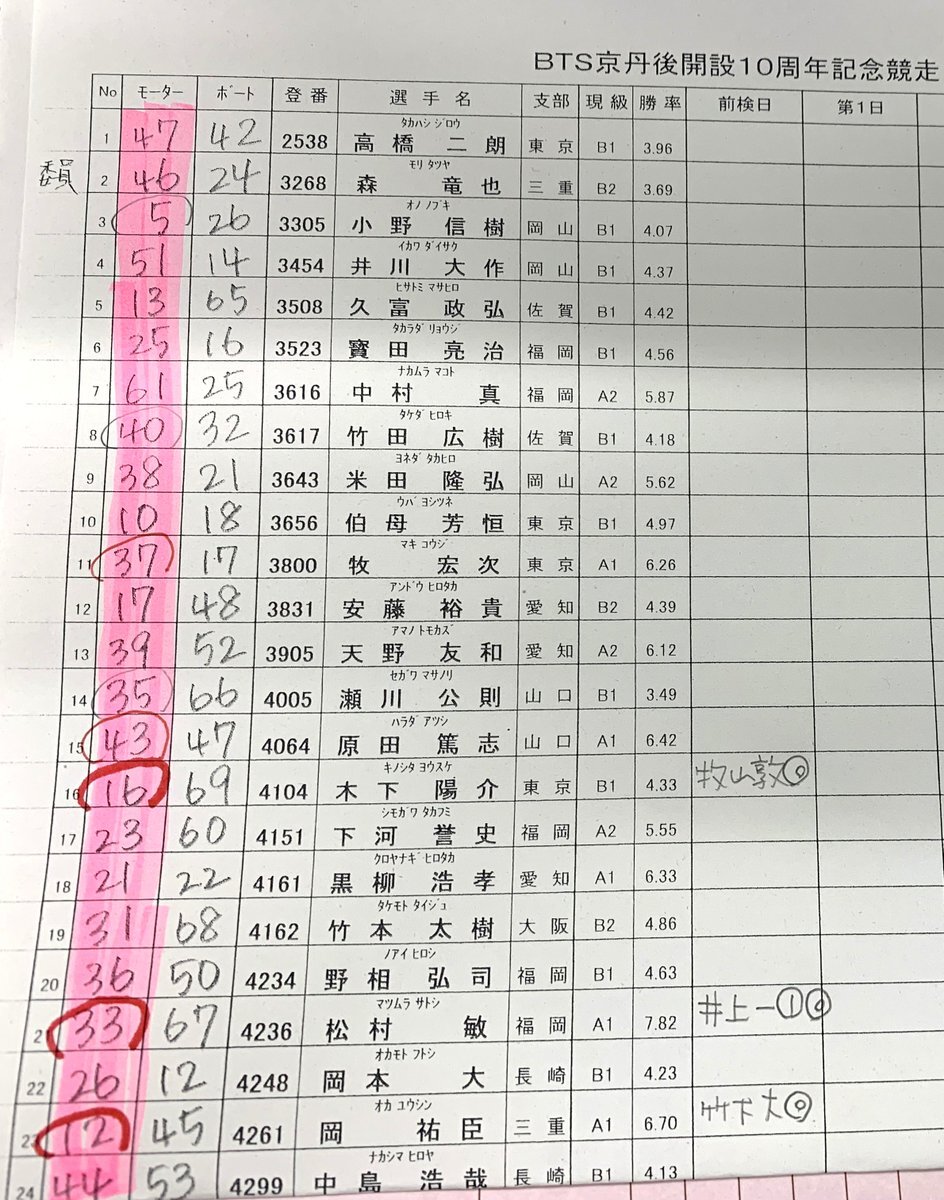 BTS京丹後開設10周年記念競走
No モーター ボート 登番 選手名 支部 現級 勝率 前検日 第1日
1 47 42 2538 タカハシ ジロウ 高橋二朗 東京 B1 3.96
委員 2 46 24 3268 モリ タツヤ 森竜也 三重 B2 3.69
3 5 26 3305 オノ ノブキ 小野信樹 岡山 B1 4.07
4 51 14 3454 イカワ ダイサク 井川大作 岡山 B1 4.37
5 13 65 3508 ヒサトミ マサヒロ 久富政弘 佐賀 B1 4.42
6 25 16 3523 タカラダ リョウジ 寳田亮治 福岡 B1 4.56
7 61 25 3616 ナカムラ マコト 中村真 福岡 A2 5.87
8 40 32 3617 タケダ ヒロキ 竹田広樹 佐賀 B1 4.18
9 38 21 3643 ヨネダ タカヒロ 米田隆弘 岡山 A2 5.62
10 10 18 3656 ウバ ヨシツネ 伯母芳恒 東京 B1 4.97
11 37 17 3800 マキ コウジ 牧宏次 東京 A1 6.26
12 17 48 3831 アンドウ ヒロタカ 安藤裕貴 愛知 B2 4.39
13 39 52 3905 アマノ トモカズ 天野友和 愛知 A2 6.12
14 35 66 4005 セガワ マサノリ 瀬川公則 山口 B1 3.49
15 43 47 4064 ハラダ アツシ 原田篤志 山口 A1 6.42
16 16 69 4104 キノシタ ヨウスケ 木下陽介 東京 B1 4.33 牧山敦◎
17 23 60 4151 シモガワ タカフミ 下河誉史 福岡 A2 5.55
18 21 22 4161 クロヤナギ ヒロタカ 黒柳浩孝 愛知 A1 6.33
19 31 68 4162 タケモト タイジュ 竹本太樹 大阪 B2 4.86
20 36 50 4234 ノアイ ヒロシ 野相弘司 福岡 B1 4.63
2 33 67 4236 マツムラ サトシ 松村敏 福岡 A1 7.82 井上一①◎
22 26 12 4248 オカモト フトシ 岡本大 長崎 B1 4.23
23 12 45 4261 オカ ユウシン 岡祐臣 三重 A1 6.70 竹下大◎
24 44 53 4299 ナカシマ ヒロヤ 中島浩哉 長崎 B1 4.13